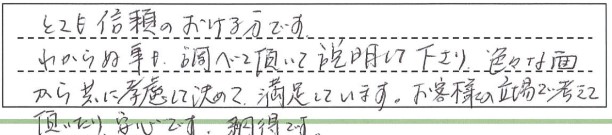 とても信頼のおける方です。
わからぬ事も、調べて頂いて説明して下さり、色々な面
から共に考慮して決めて、満足しています。お客様の立場で考えて
頂いたり、安心です。納得です。